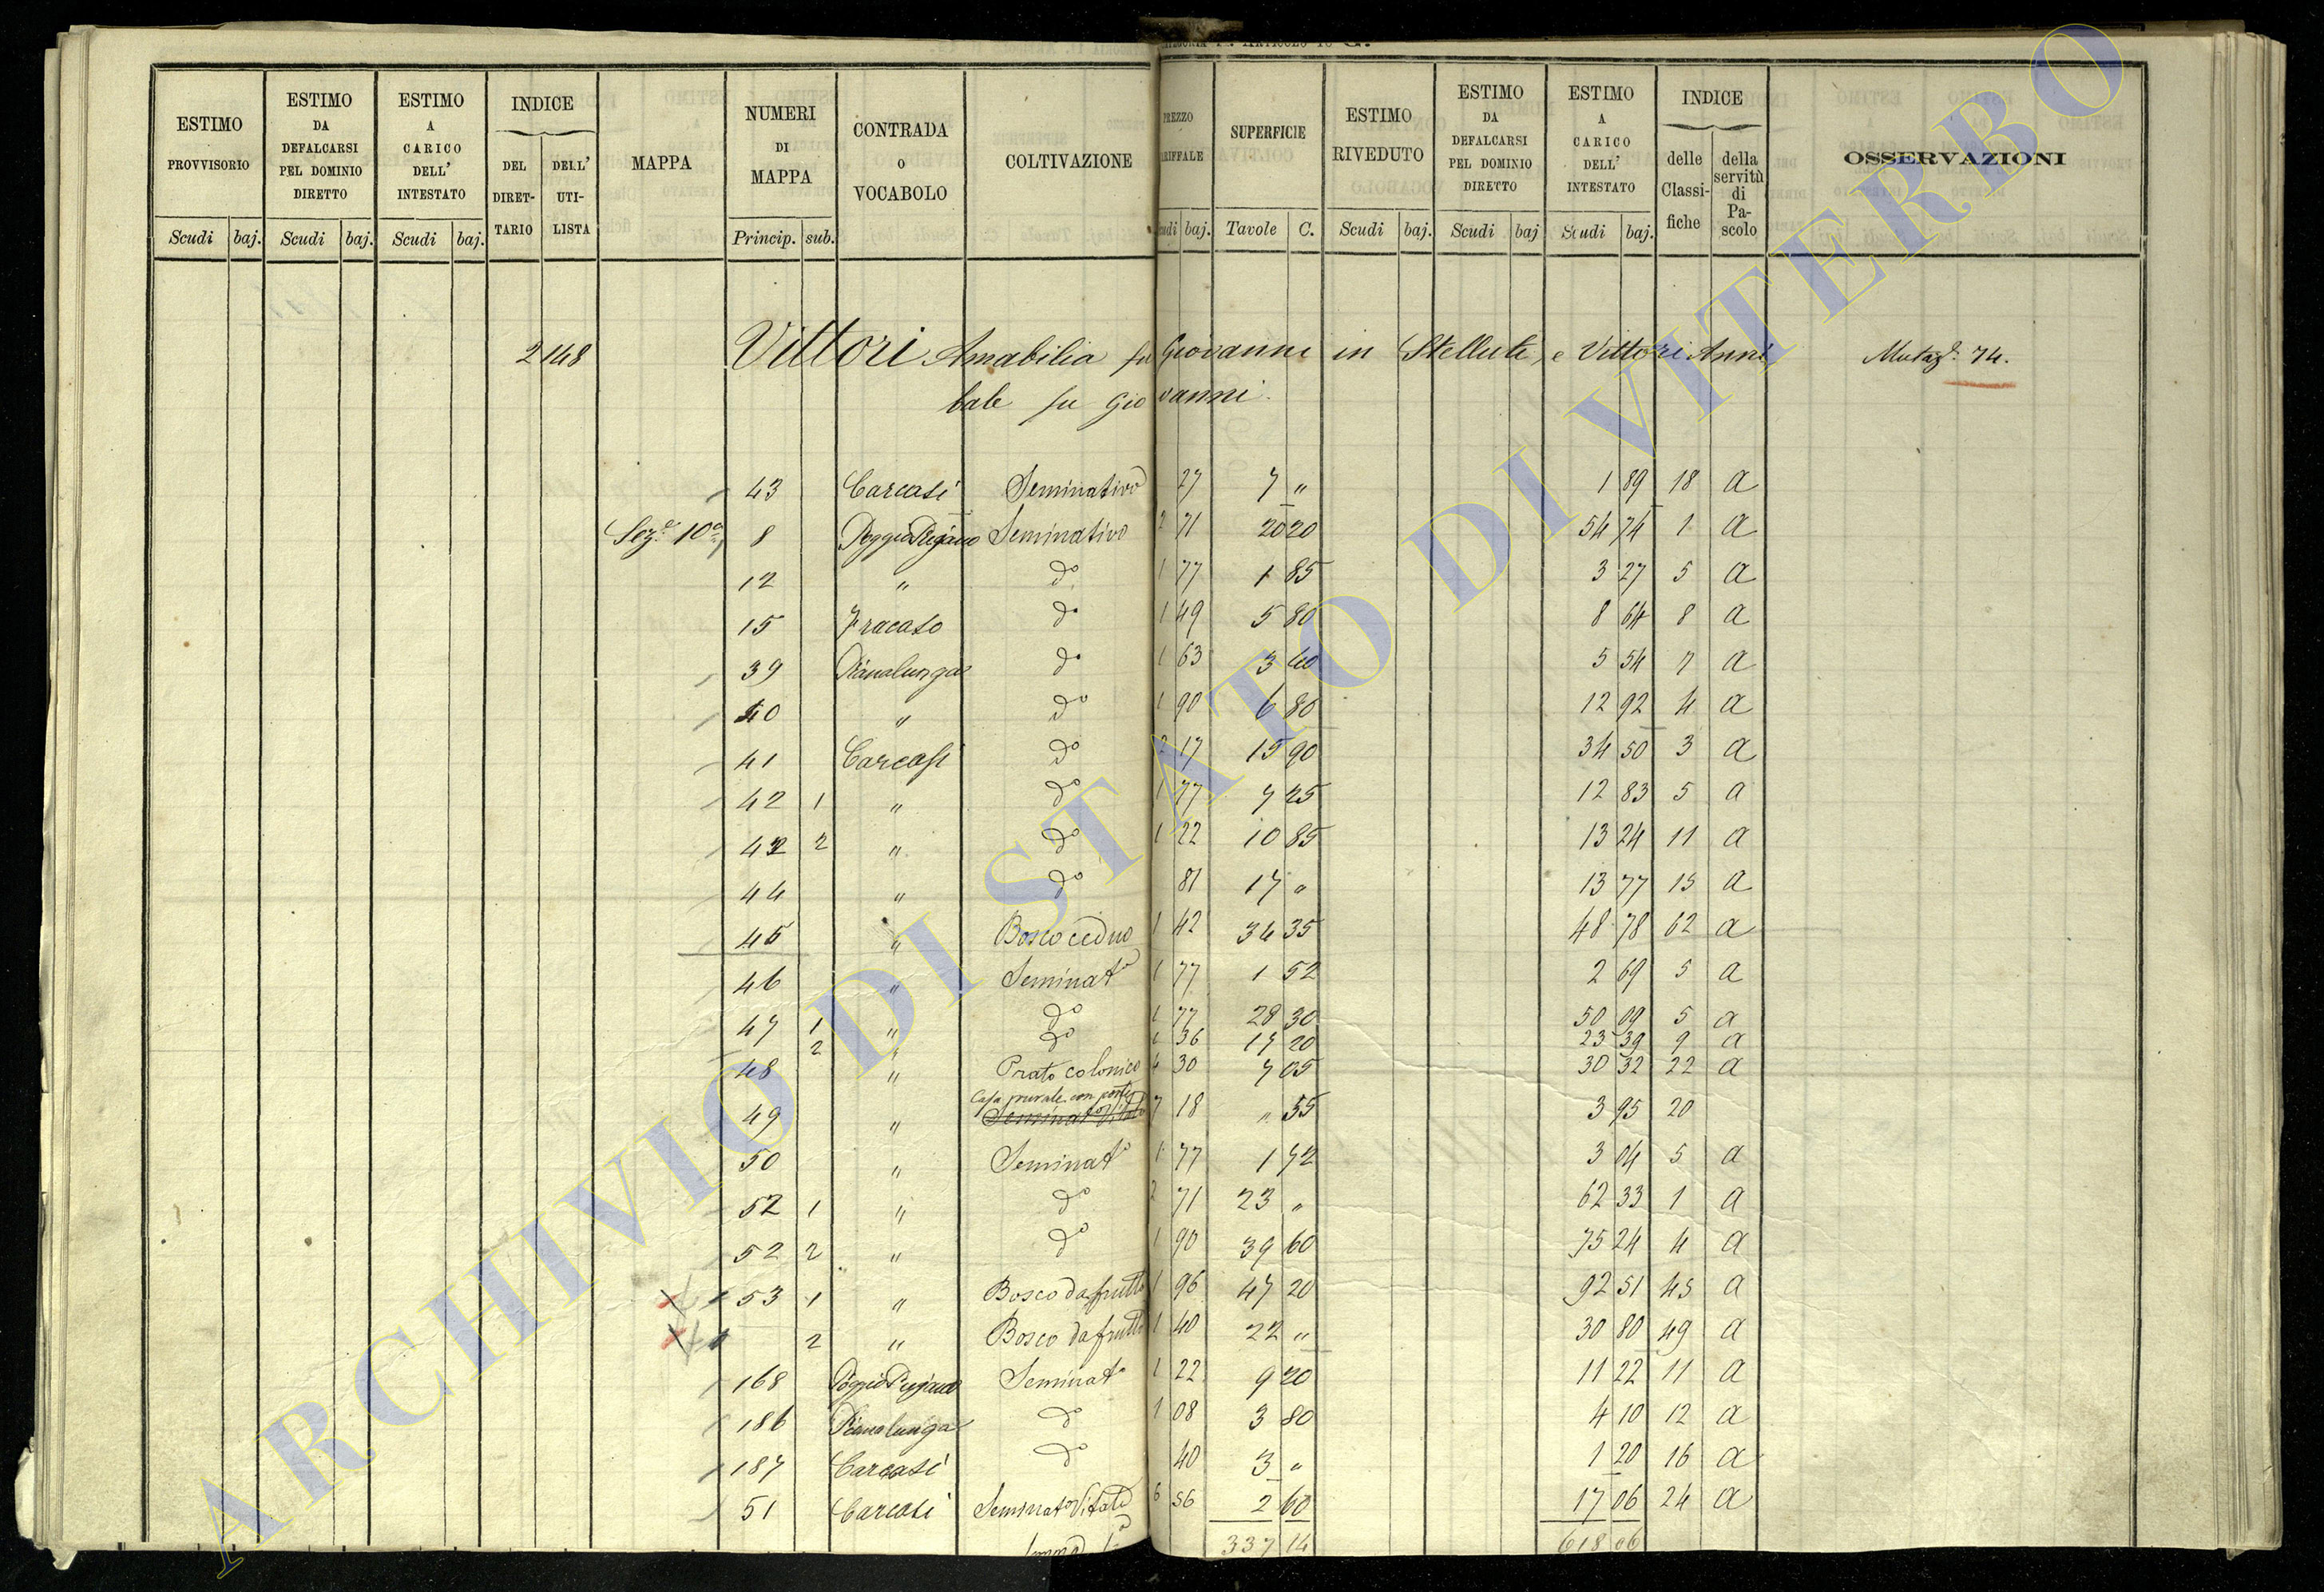 ESTIMO PROVVISORIO | ESTIMO DA DEFALCARSI PEL DOMINIO DIRETTO | ESTIMO A CARICO DELL' INTESTATO | INDICE DEL DIRETTARIO | DELL' UTILISTA | MAPPA | NUMERI DI MAPPA | CONTRADA O VOCABOLO | COLTIVAZIONE | PREZZO | SUPERFICIE | ESTIMO RIVEDUTO | ESTIMO DA DEFALCARSI PEL DOMINIO DIRETTO | ESTIMO A CARICO DELL' INTESTATO | INDICE delle Classifiche | della servitù di Pascolo | OSSERVAZIONI
Scudi baj. Scudi baj. Scudi baj. Princip. sub. baj. Tavole C. Scudi baj. Scudi baj Scudi baj.
2148 Vittori Amabilia fu Giovanni in Stellute, e Vittori Anni Mutaz.e 74.
bale fu Giovanni.
43 Carcasi Seminativo 27 7 " 1 89 18 a
Sez.e 10a 8 Poggio Pegiano Seminativo 2 71 20 20 54 74 1 a
12 " do 1 77 1 85 3 27 5 a
15 Fracaso do 1 49 5 80 8 64 8 a
39 Pianalunga do 1 63 3 40 5 54 7 a
40 " do 1 90 6 80 12 92 4 a
41 Carcasi do 2 17 15 90 34 50 3 a
42 1 " do 1 77 7 25 12 83 5 a
42 2 " do 1 22 10 85 13 24 11 a
44 " do 81 17 " 13 77 15 a
45 " Bosco ceduo 1 42 34 35 48 78 62 a
46 " Seminato 1 77 1 52 2 69 5 a
47 1 " do 1 77 28 30 50 09 5 a
2 " do 1 36 17 20 23 39 9 a
48 " Prato colonico 4 30 7 05 30 32 22 a
49 " Casa rurale con corte 7 18 " 55 3 95 20
50 " Seminato 1 77 1 72 3 04 5 a
52 1 " do 2 71 23 " 62 33 1 a
52 2 " do 1 90 39 60 75 24 4 a
53 1 " Bosco da frutto 1 96 47 20 92 51 45 a
2 " Bosco da frutto 1 40 22 " 30 80 49 a
168 Poggio Pegiano Seminato 1 22 9 20 11 22 11 a
186 Pianalunga do 1 08 3 80 4 10 12 a
187 Carcasi do 40 3 " 1 20 16 a
51 Carcasi Seminato Vitato 6 56 2 60 17 06 24 a
337 14 618 06
ARCHIVIO DI STATO DI VITERBO